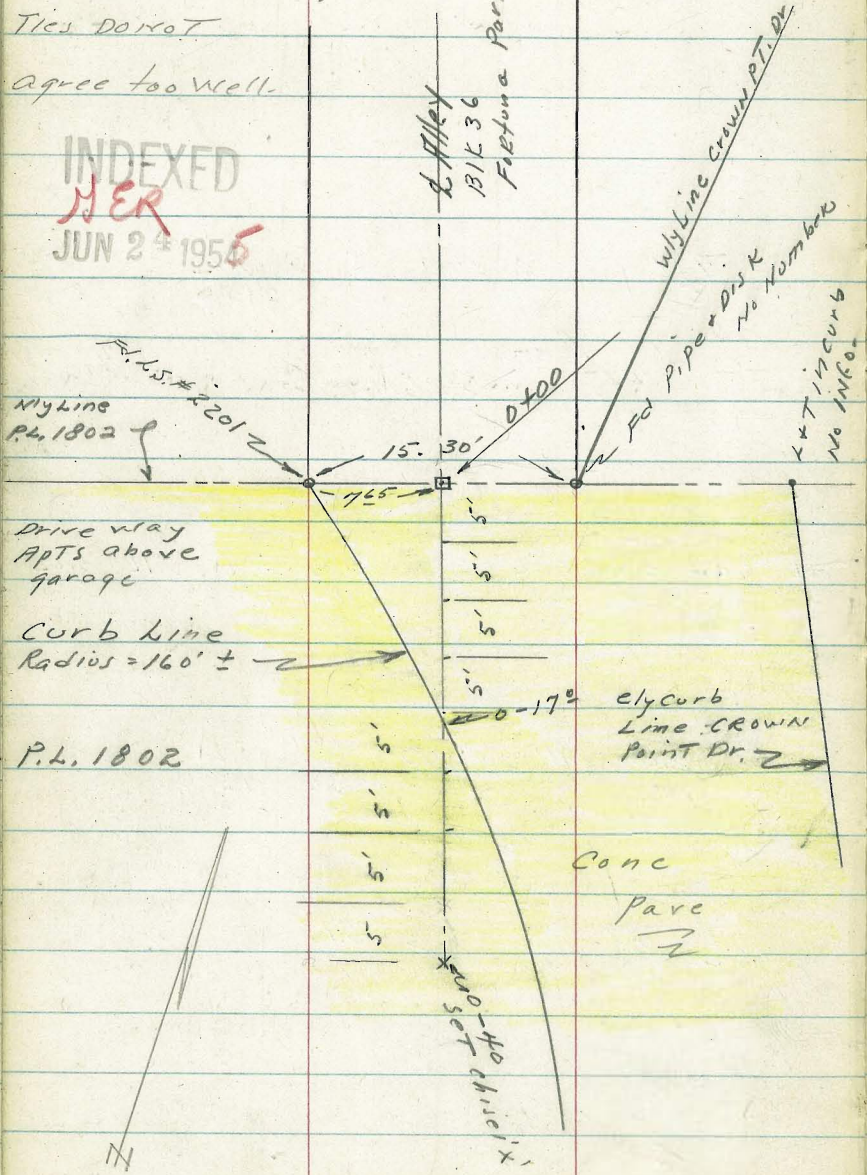 Ties Do Not
agree too well.
INDEXED
GER
JUN 24 1955
℄ Alley
Blk 36
Fortuna Par
Wly Line Crown PT. Dr
Fd Pipe & Disk
No Number
L&T in curb
No INFO-
Fd. L.S. # 2201
Nly Line
P.L. 1802
15.30'
0+00
7.65
5'
5'
5'
5'
Drive way
Apts above
garage
Curb Line
Radius = 160' ±
0-17°
ely curb
Line CROWN
Point Dr.
P.L. 1802
5'
5'
5'
5'
Conc
Pave
0-40
Set chisel 'x'
N